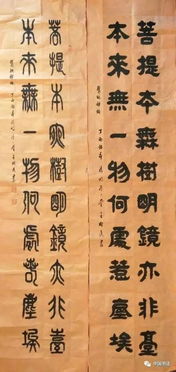 菩提本無樹明鏡亦非臺
本來無一物何處惹塵埃
菩提本無樹明鏡亦非臺
本來無一物何處惹塵埃